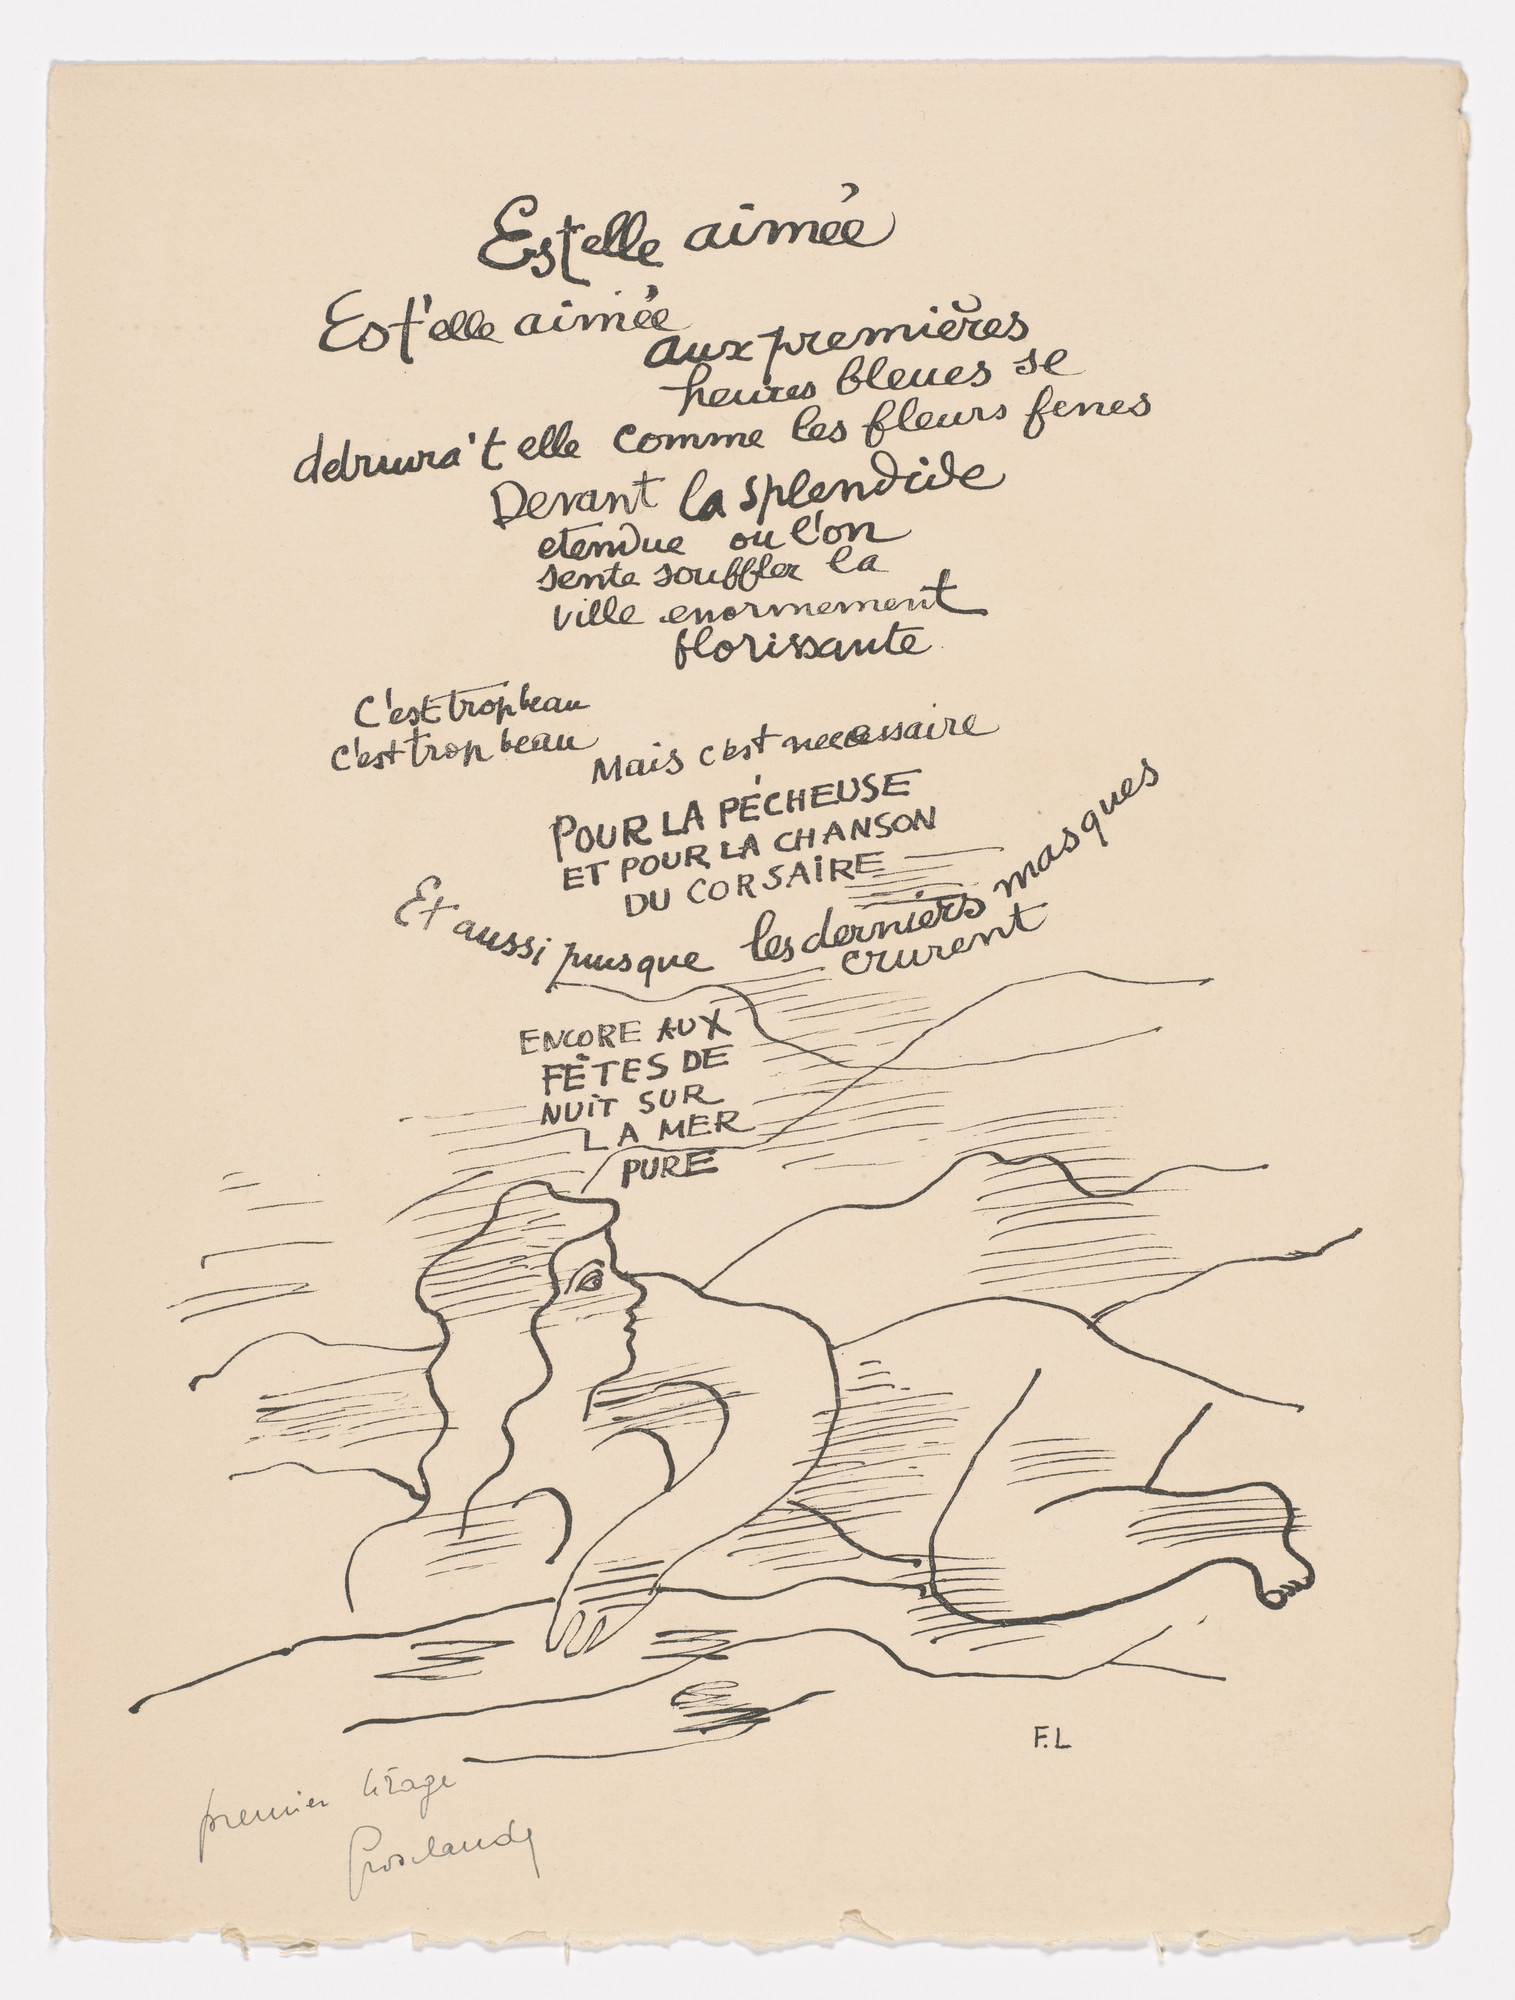 Estelle aimée
Est'elle aimée
aux premières
heures bleues se
detruira't elle comme les fleurs fenes
Devant la splendide
etendue ou l'on
sente souffler la
ville enormement
florissante
C'est trop beau
c'est trop beau
Mais c'est necessaire
POUR LA PÉCHEUSE
ET POUR LA CHANSON
DU CORSAIRE
Et aussi puisque les derniers masques
crurent
ENCORE AUX
FÊTES DE
NUIT SUR
LA MER
PURE
F.L
premier tirage